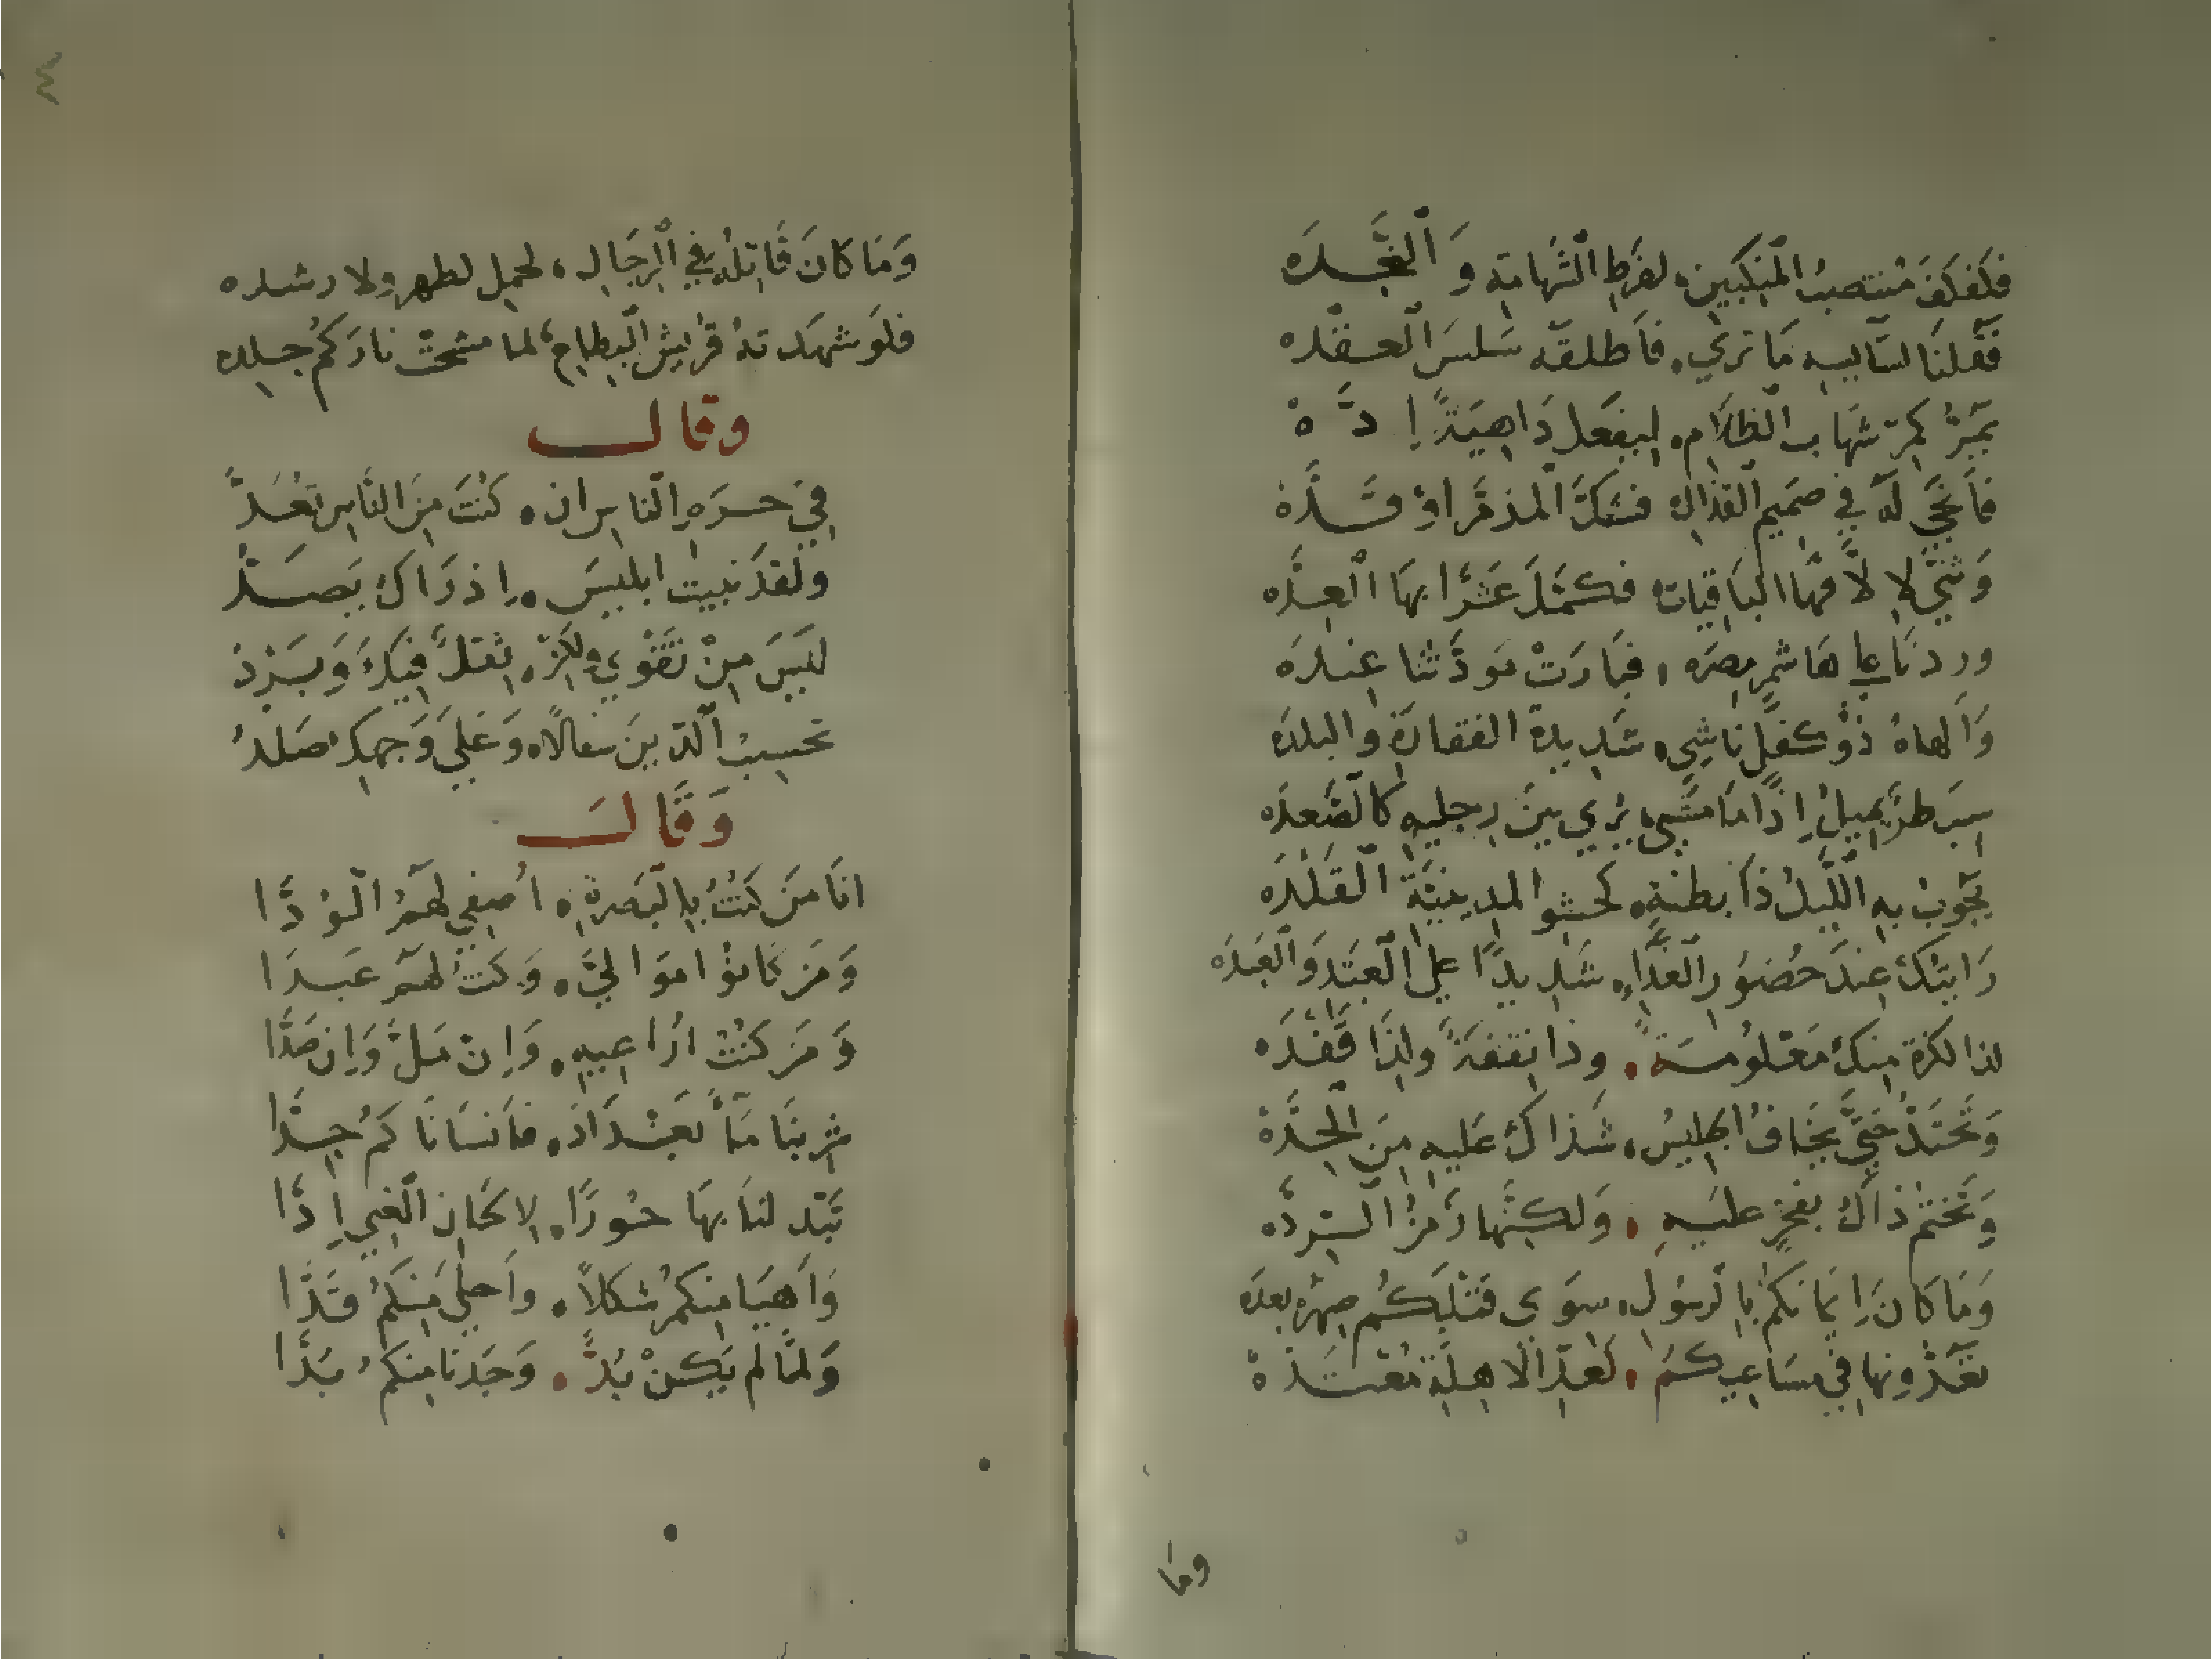 فكفكف منتصب المنكبين، لفرط الشهامة والنجده
فقلنا لسايسه ما تري، فاطلقه سلس العقده
يمر كمر شهاب الظلام، ليفعل داهية اده
فانحي له في صميم القذال فشك المذمر او قده
وثني لا فما الباقيات فكمل عشرا بها العده
وردنا علي هاشم مصره، فبارت مودتنا عنده
والهاه ذو كفل ناشي، شديد الفقارة والبلده
سبطر يميل اذا ما مشي، يري بين رجليه كالصعده
يجوب به الليل ذا بطنة، كحشو المدينية القلده
رايتك عند حضور الغذاء، شديدا علي العبد والعبده
لذا لكزة منك معلومة، وذا نقفة ولذا قفده
وتحتد حتي يخاف الجليس، شذاك عليه من الحده
وتختم ذاك بفخر عليه، ولكنها السرده
وما كان ايمانكم بالرسول، سوي قتلكم صهره بعده
تعدونها في مساعيكم، لعد الاهلة معتده
وما
٤
وما كان قاتله في الرجال، لحمل لطهر ولا رشده
فلو شهدته قريش البطاح، لما محشت ناركم جلده
وقال
في حره الناس ان، كنت من الناس تعد
ولقد نبيت ابليس، اذ راك يصد
ليس من تقوي ولكن، ثقل فيك وبرد
تحسب الدين سعالا، وعلي وجهك صلد
وقال
انا من كنت بالبصرة، اصفي لهم الودا
ومن كانوا موالي، وكنت لهم عبدا
ومن كنت اراعيه، وان مل وان صدا
شربنا ماء بغداد، فانساناكم جدا
تبدلنا بها حورا، لالحان الغني ادا
واهيا منكم شكلا، واحلي منكم قدا
ولما لم يكن بد، وجدنا منكم بدا